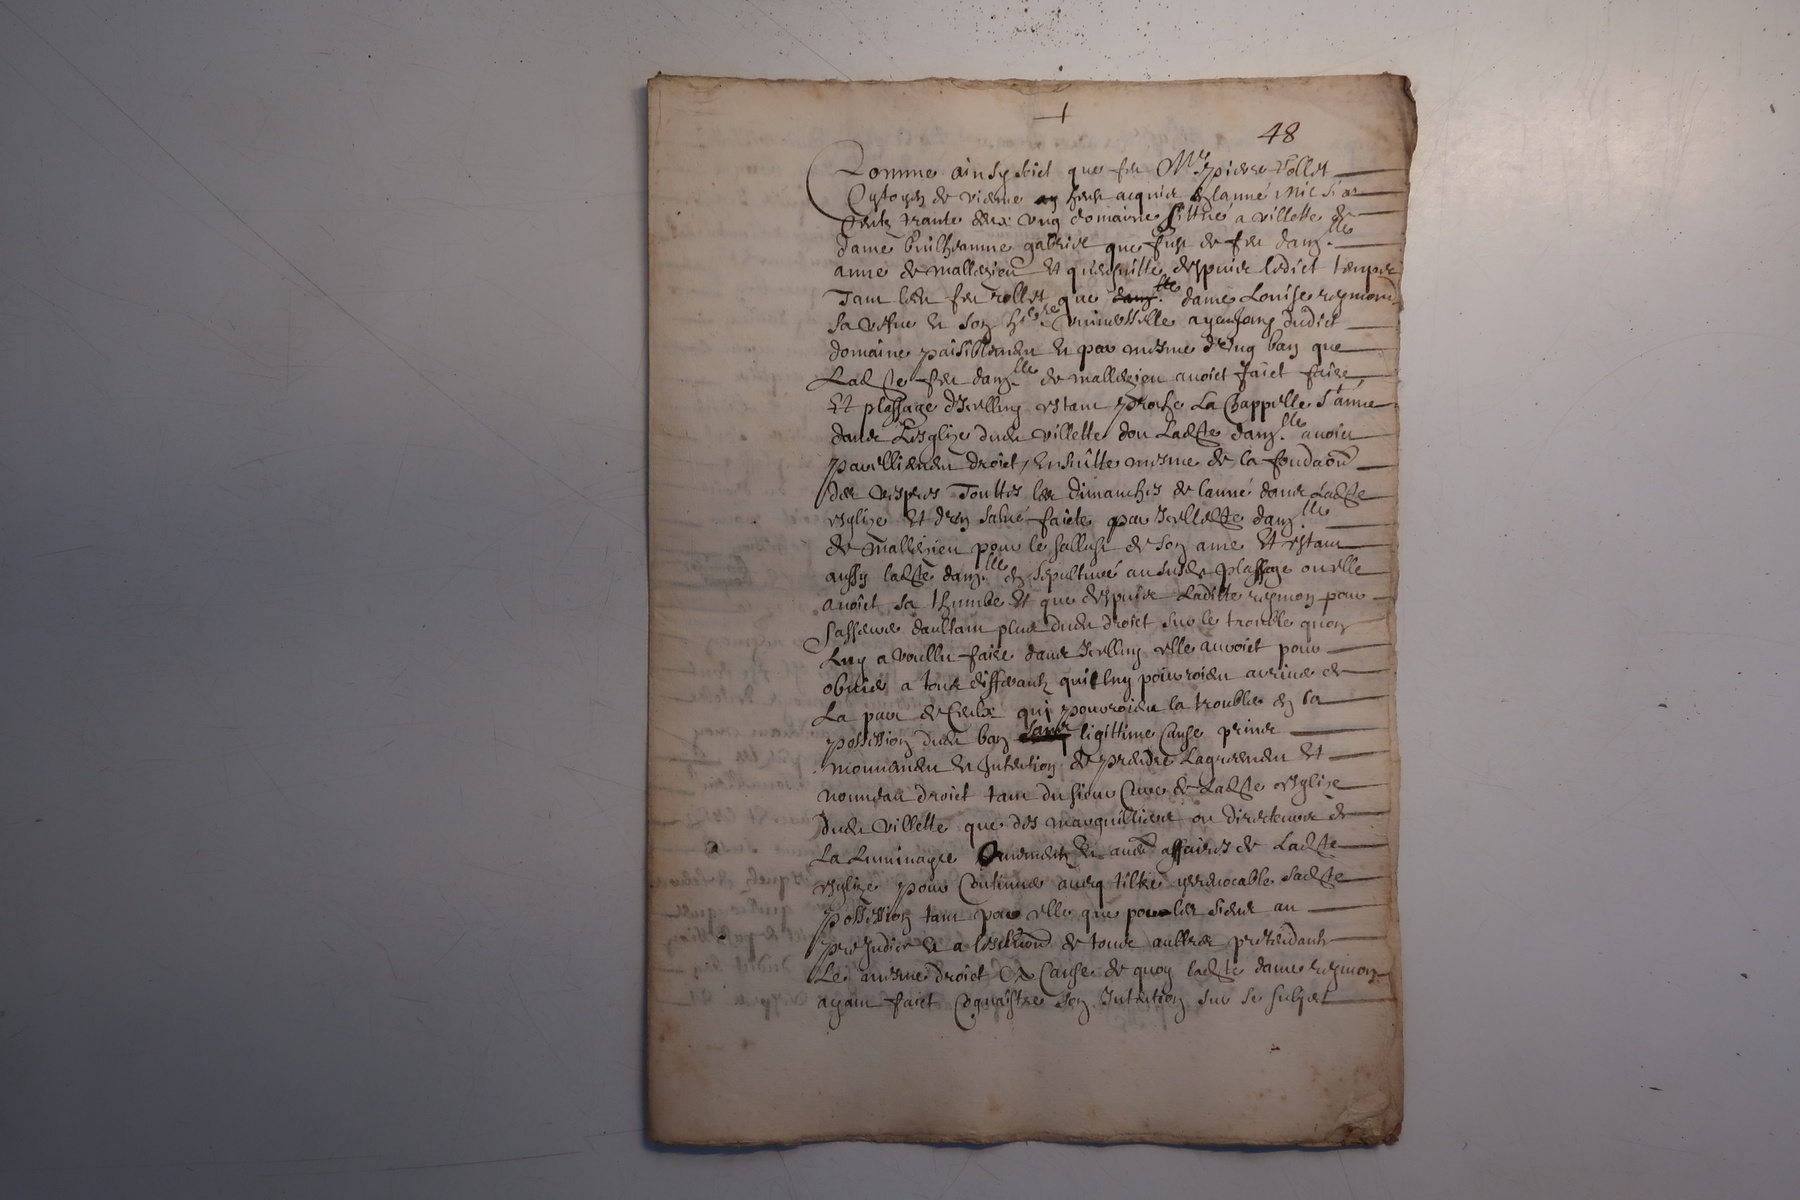 48
Comme ainsy soict que feu Mre pierre Rollet
Cytoyen de vienne heu acquis en lanné mil six
centz trante deux vng domaine sittué a villette de
dame Guilheaume gabriel que fust de feu damlle
anne de mallezieu Et quensuitte despuis ledict temps
Tant led feu rollet que dame Louise reymond
sa vefve et son here vniverselle ayent jouy dudict
domaine paisiblement et par mesme d'vng banc que
Ladte feu damlle de mallezieu avoict faict faire
Et plassage d'Icelluy estant proche La Chappelle Ste anne
dans L'esglize dudt villette dou Ladte damlle avoict
pareillement droict, ensuitte mesme de la fondaon
des vespres Touttes les dimanches de lanné dans Ladte
esglize Et d'un salvé faicte par Icelledte damlle
de mallezieu pour le sallut de son ame Et estant
aussy ladte damlle en sepulturé au susdt plassage ou elle
avoict sa thumbe Et que despuis Laditte reymon pour
s'asseurer daultant plus dudt droict sur le trouble quon
Luy a voullu faire dans Icelluy elle auroict pour
obvier a tous differantz qui luy pourroient arriver de
La part de Ceulx qui pourroient la troubler en sa
possession dudt banc sans ligittime Cause prins
mouvement et Intention de prendre Lagreement Et
nouveau droict tant du sieur Curé de Ladte esglize
dudt villette que des marguilliers ou directeurs de
La Luminayre ornementz et autres affaires de Ladte
esglize pour Continuer avecq tiltre yrrevocable Sadte
possession tant pour elle que pour les siens au
prejudice et a lesclusion de tous aultres pretendants
Le mesme droict A Cause de quoy ladte dame reymon
ayant faict Cognaistre son Intention sur se subject